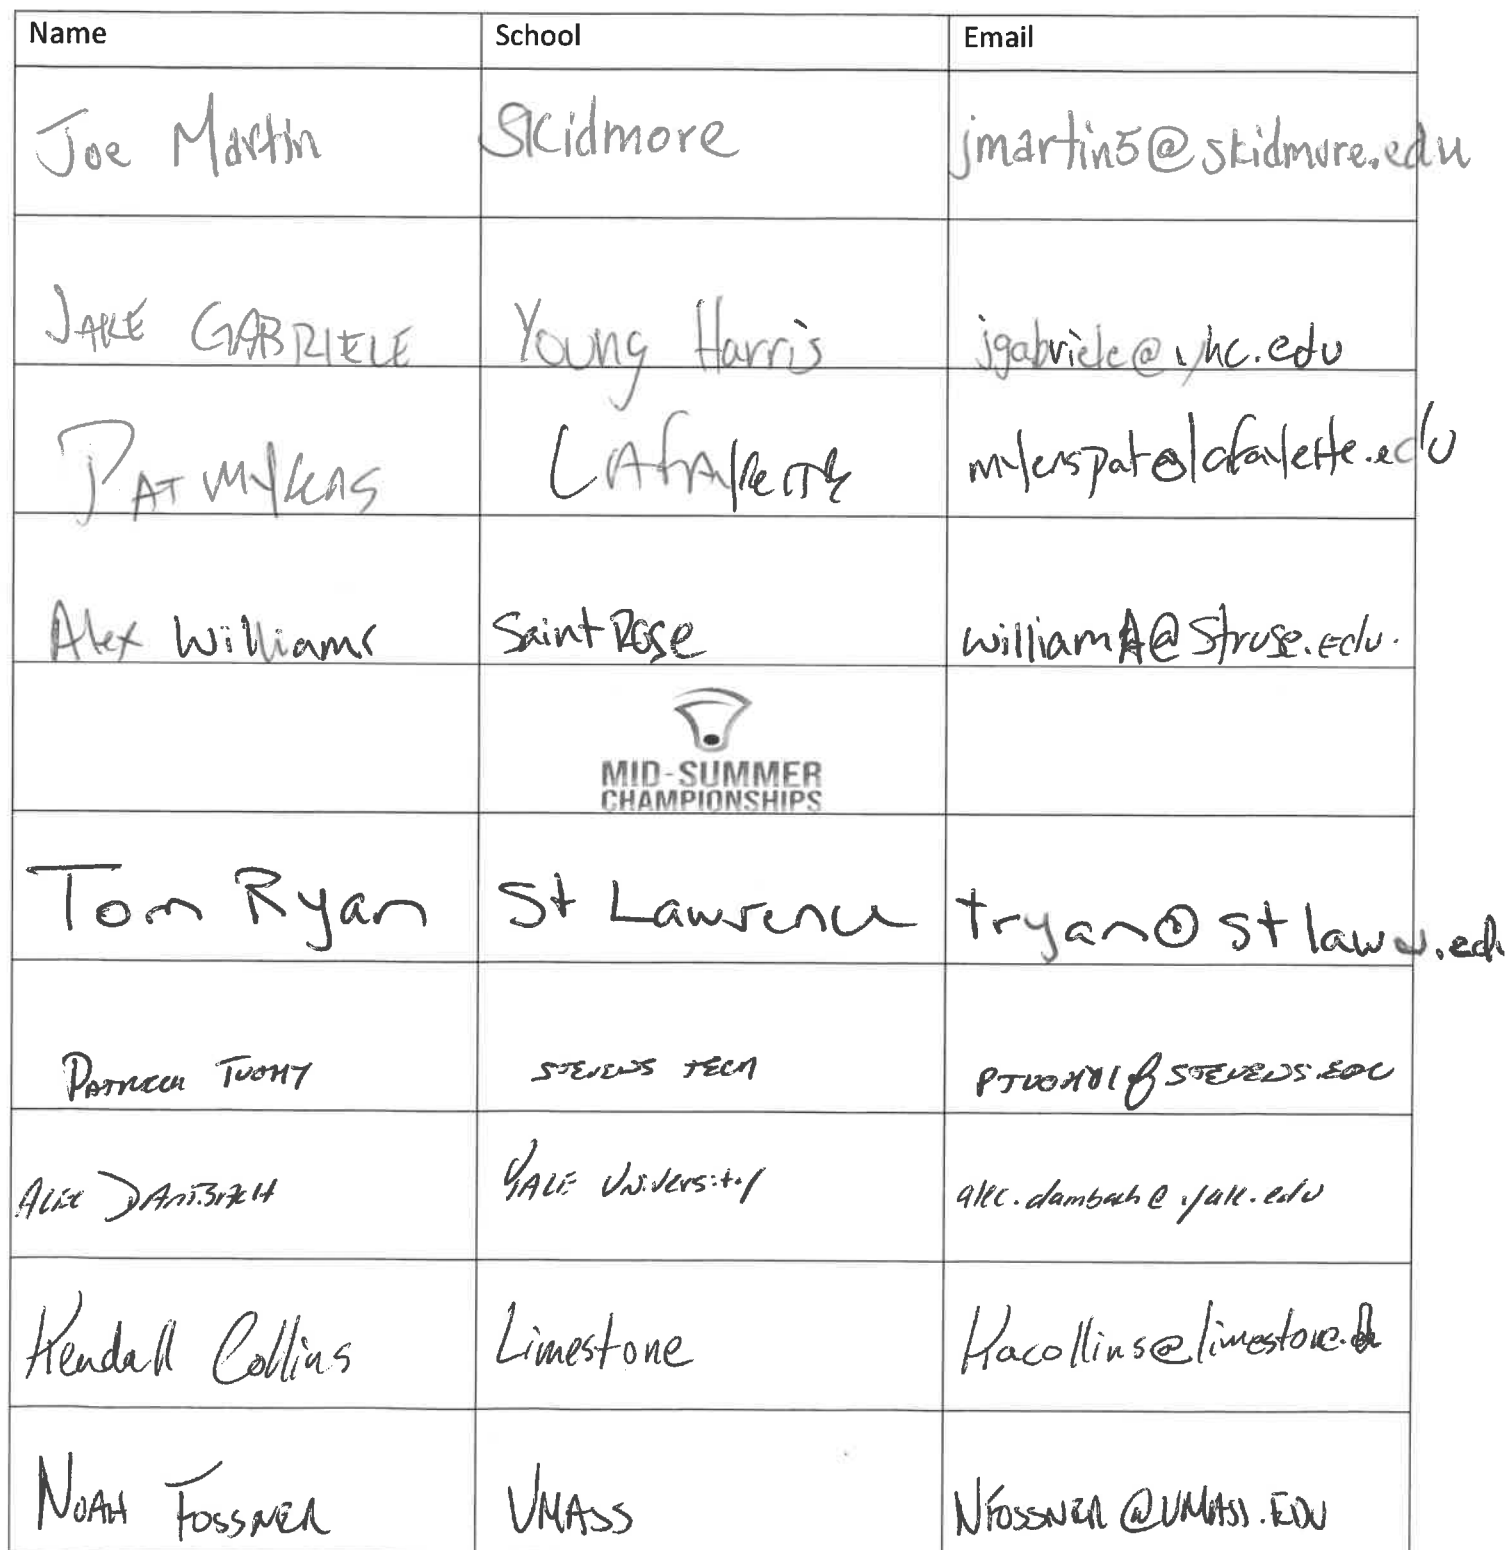 Name School Email
Joe Martin Skidmore jmartin5@skidmore.edu
JAKE GABRIELE Young Harris jgabriele@yhc.edu
PAT Mykens LAFAyette mykenspat@lafayette.edu
Alex Williams Saint Rose williamA@strose.edu.
MID-SUMMER
CHAMPIONSHIPS
Tom Ryan St Lawrence tryan@stlawu.edu
PATRICK TUOHY STEVENS TECH @STEVENS.EDU
ALEC DAMBACH YALE University alec.dambach@yale.edu
Kendall Collins Limestone
NOAH FOSSNER UMASS NFOSSNER@UMASS.EDU